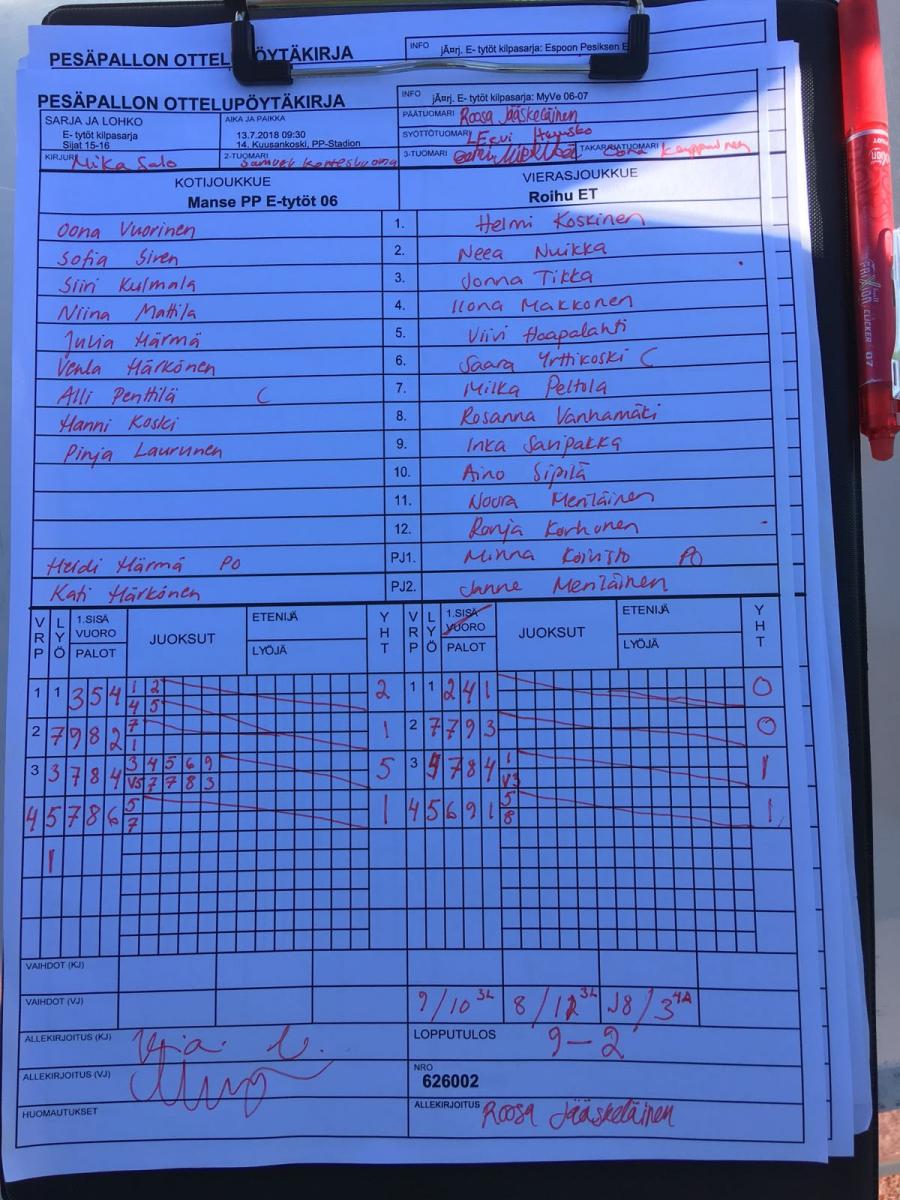 PESÄPALLON OTTELUPÖYTÄKIRJA
INFO jÃ¤rj. E- tytöt kilpasarja: Espoon Pesiksen E
PESÄPALLON OTTELUPÖYTÄKIRJA
INFO jÃ¤rj. E- tytöt kilpasarja: MyVe 06-07
SARJA JA LOHKO AIKA JA PAIKKA PÄÄTUOMARI Roosa Jääskeläinen
E- tytöt kilpasarja 13.7.2018 09:30 SYÖTTÖTUOMARI
Sijat 15-16 14. Kuusankoski, PP-Stadion
KIRJURI Mika Salo 2-TUOMARI Samuel 3-TUOMARI TAKARAJATUOMARI Oona
KOTIJOUKKUE VIERASJOUKKUE
Manse PP E-tytöt 06 Roihu ET
Oona Vuorinen 1. Helmi Koskinen
Sofia Siren 2. Neea Nuikka
Siiri Kulmala 3. Jonna Tikka
Niina Mattila 4. Ilona Makkonen
Julia Härmä 5. Viivi Haapalahti
Venla Härkönen 6. Saara Yrttikoski C
Alli Penttilä C 7. Milka Peltola
Hanni Koski 8. Rosanna Vanhamäki
Pinja Laurunen 9. Inka Saripakka
10. Aino Sipilä
11. Noora Meriläinen
12. Ronja Korhonen
Heidi Härmä PO PJ1. Minna Koivisto PO
Kati Härkönen PJ2. Janne Meriläinen
VRP LYÖ 1.SISÄ VUORO PALOT JUOKSUT ETENIJÄ LYÖJÄ YHT VRP LYÖ 1.SISÄ VUORO PALOT JUOKSUT ETENIJÄ LYÖJÄ YHT
1 1 3 5 4 1 2 2 1 1 2 4 1 0
4 5
2 7 9 8 2 7 1 2 7 7 9 3 0
1
3 3 7 8 4 3 4 5 6 9 5 3 9 7 8 4 1 1
V5 7 7 8 3 V3
4 5 7 8 6 5 1 4 5 6 9 1 5 1
7 8
1
VAIHDOT (KJ)
VAIHDOT (VJ) 9/10 3L 8/12 3L J8/3 4A
ALLEKIRJOITUS (KJ) LOPPUTULOS 9-2
ALLEKIRJOITUS (VJ) NRO
626002
HUOMAUTUKSET ALLEKIRJOITUS Roosa Jääskeläinen